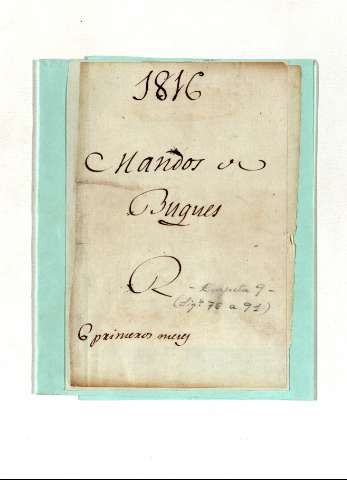 1816
Mandos de
Buques
R
- Carpeta 9 -
(Sigª 76 a 91)
6 primeros meses